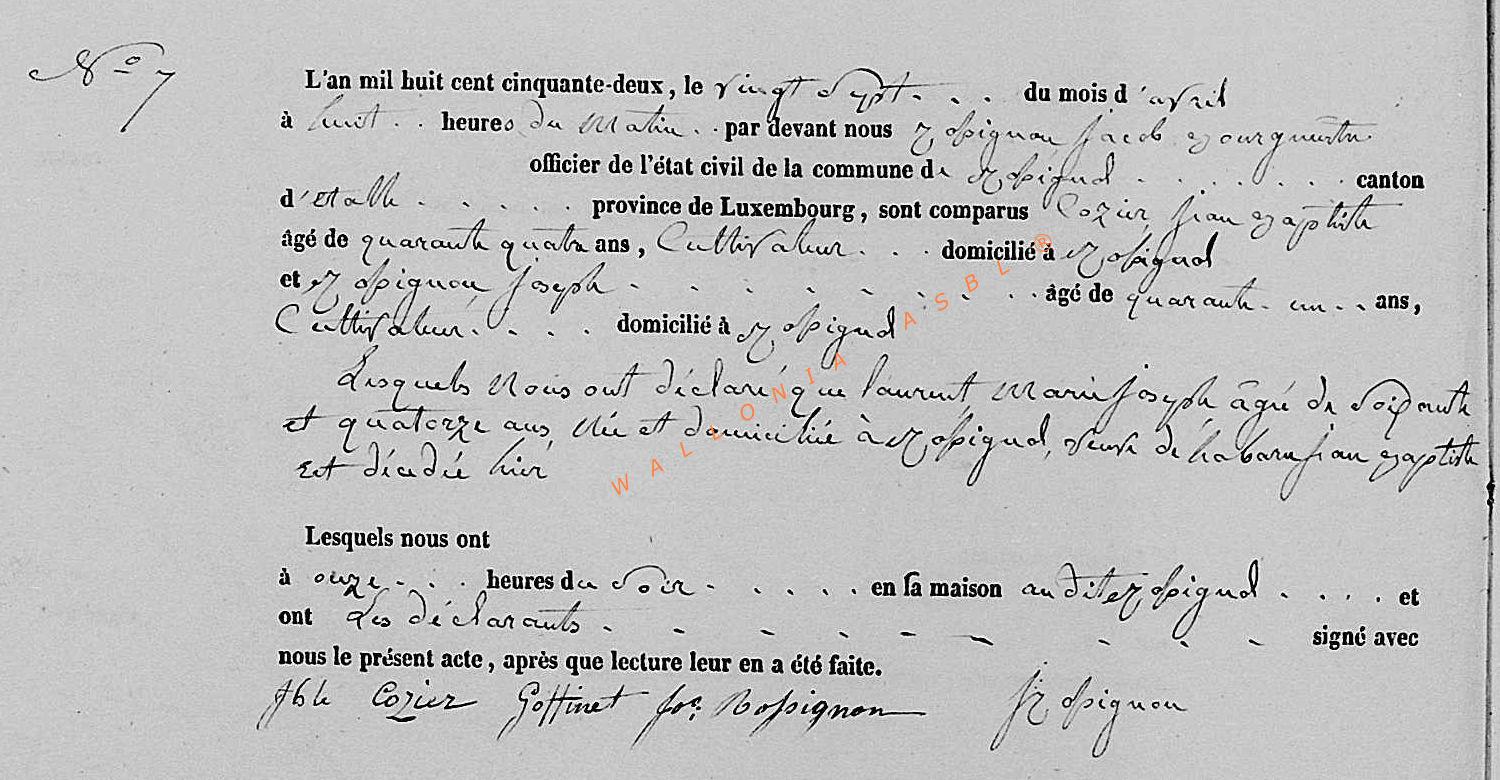 N° 7
L'an mil huit cent cinquante-deux, le vingt Sept . . . du mois d'avril
à huit . . heures du Matin . . par devant nous Rossignon Jacob Bourgmestre
officier de l'état civil de la commune de Rossignol . . . . . . . canton
d'Etalle . . . . . province de Luxembourg, sont comparus Cozier, jean Baptiste
âgé de quarante quatre ans, Cultivateur . . . domicilié à Rossignol
et Rossignon, joseph . . . . . . . . . . âgé de quarante . un . . ans,
Cultivateur . . . . domicilié à Rossignol
Lesquels Nous ont déclaré que laurent, Marie joseph, âgée de Soixante
et quatorze ans, Née et domiciliée à Rossignol, veuve de habaru jean Baptiste
Est décédée hier
Lesquels nous ont
à onze . . . heures du Soir . . . . . en sa maison audit Rossignol . . . . et
ont Les déclarants . - - - - - - - - signé avec
nous le présent acte, après que lecture leur en a été faite.
Jble Cozier Goffinet Jos. Rossignon J Rossignon
WALLONIA ASBL ®